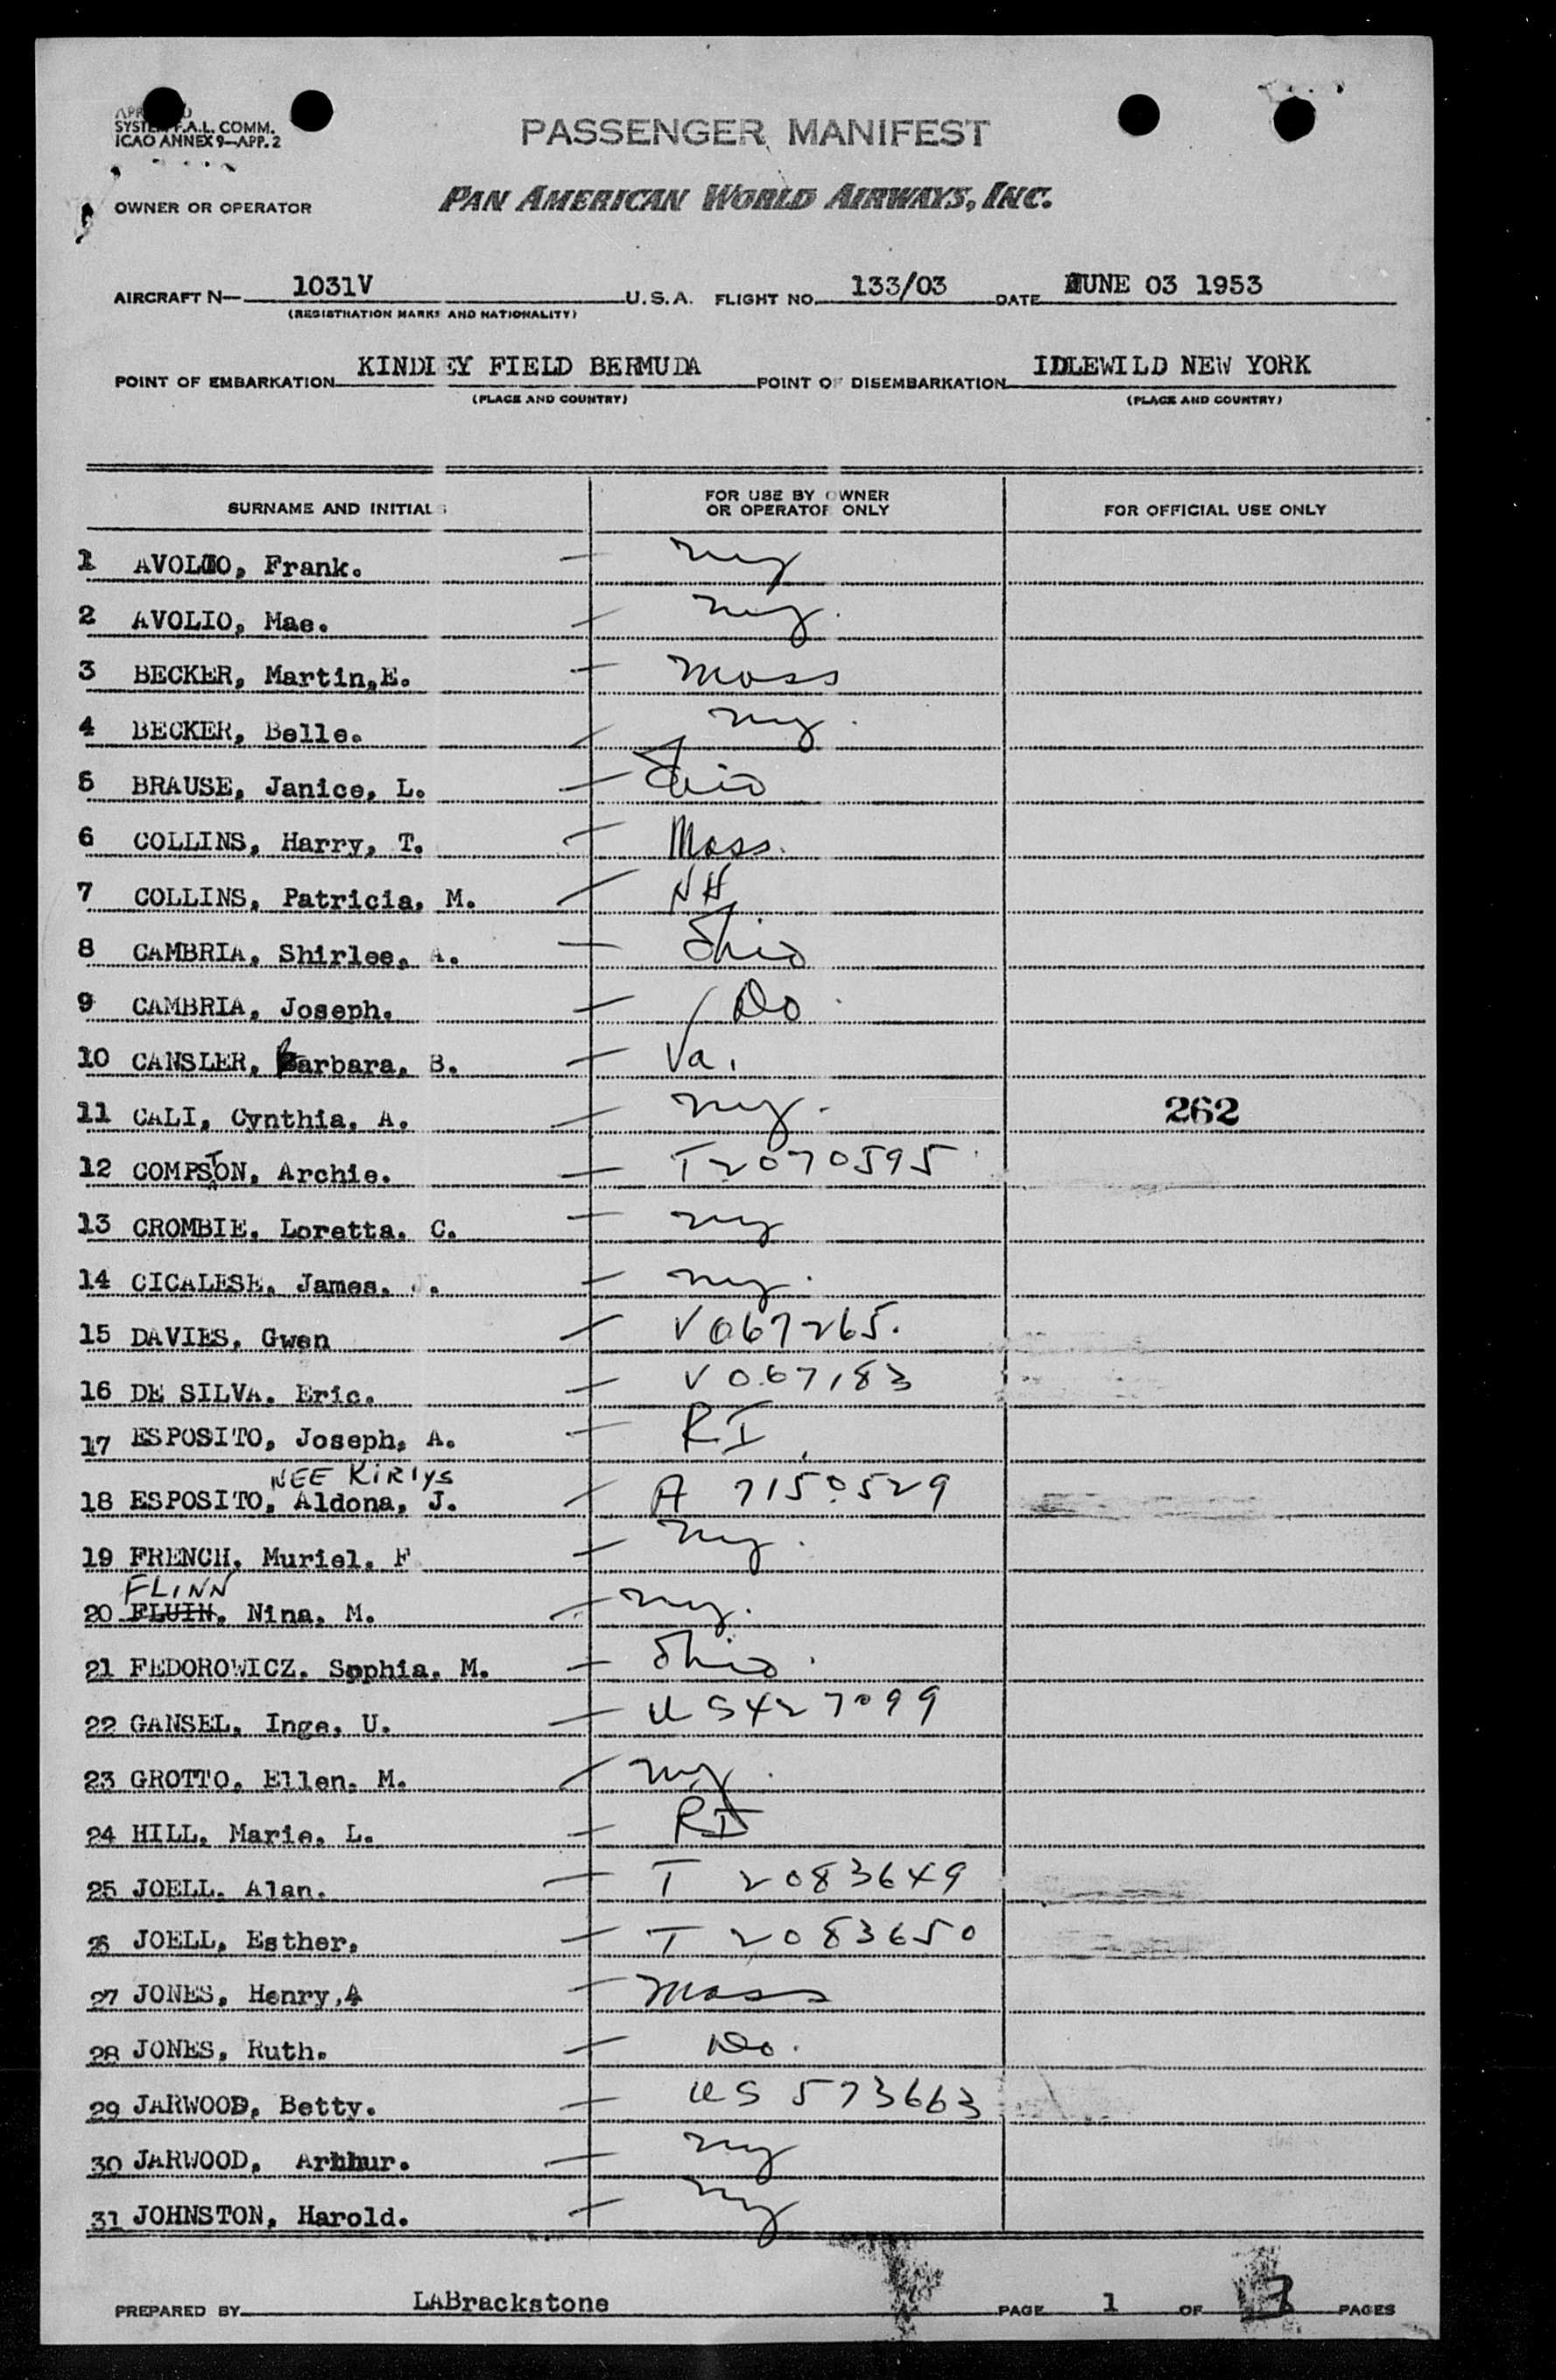 SYSTEM F.A.L. COMM.
ICAO ANNEX 9—APP. 2
PASSENGER MANIFEST
OWNER OR OPERATOR PAN AMERICAN WORLD AIRWAYS, INC.
AIRCRAFT N— 1031V U.S.A. FLIGHT NO. 133/03 DATE JUNE 03 1953
(REGISTRATION MARKS AND NATIONALITY)
POINT OF EMBARKATION KINDLEY FIELD BERMUDA POINT OF DISEMBARKATION IDLEWILD NEW YORK
(PLACE AND COUNTRY) (PLACE AND COUNTRY)
SURNAME AND INITIALS FOR USE BY OWNER OR OPERATOR ONLY FOR OFFICIAL USE ONLY
1 AVOLIO, Frank. — ny
2 AVOLIO, Mae. — ny.
3 BECKER, Martin,E. — mass
4 BECKER, Belle. — ny.
5 BRAUSE, Janice, L. — Ohio
6 COLLINS, Harry, T. — Mass.
7 COLLINS, Patricia, M. — NH
8 CAMBRIA, Shirlee, A. — Ohio
9 CAMBRIA, Joseph. — Do
10 CANSLER, Barbara, B. — Va.
11 CALI, Cynthia, A. — ny. 262
12 COMPSTON, Archie. — T2070595
13 CROMBIE, Loretta. C. — ny
14 CICALESE, James. . — ny.
15 DAVIES, Gwen — V067265.
16 DE SILVA. Eric. — V067183
17 ESPOSITO, Joseph, A. — RI
NEE KIRIYS
18 ESPOSITO, Aldona, J. — A 7150529
19 FRENCH, Muriel, F — ny.
FLINN
20 FLUIN, Nina, M. — ny.
21 FEDOROWICZ. Sophia, M. — Ohio.
22 GANSEL, Inge, U. — US427099
23 GROTTO, Ellen, M. — ny.
24 HILL, Marie, L. — RI
25 JOELL. Alan. — T 2083649
26 JOELL, Esther. — T 2083650
27 JONES, Henry,A — mass
28 JONES, Ruth. — Do.
29 JARWOOD, Betty. — US 573663
30 JARWOOD, Arthur. — ny
31 JOHNSTON, Harold. — ny
PREPARED BY LABrackstone PAGE 1 OF 3 PAGES